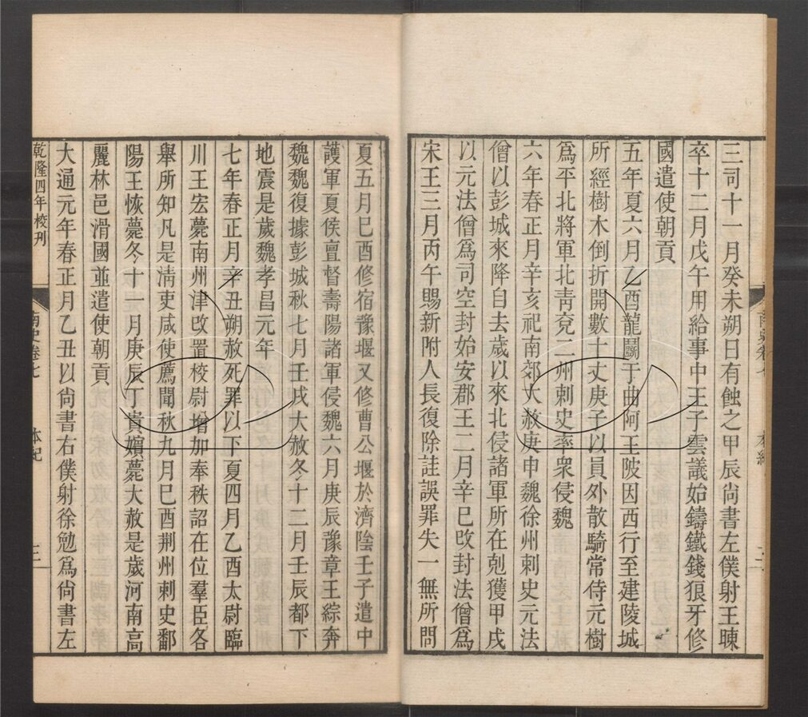 三司十一月癸未朔日有蝕之甲辰尚書左僕射王暕
卒十二月戊午用給事中王子雲議始鑄鐵錢狼牙修
國遣使朝貢
五年夏六月乙酉龍鬭于曲阿王陂因西行至建陵城
所經樹木倒折開數十丈庚子以員外散騎常侍元樹
爲平北將軍北靑兗二州刺史率衆侵魏
六年春正月辛亥祀南郊大赦庚申魏徐州刺史元法
僧以彭城來降自去歲以來北侵諸軍所在剋獲甲戌
以元法僧爲司空封始安郡王二月辛巳改封法僧爲
宋王三月丙午賜新附人長復除詿誤罪失一無所問
夏五月巳酉修宿豫堰又修曹公堰於濟陰壬子遣中
護軍夏侯亶督壽陽諸軍侵魏六月庚辰豫章王綜奔
魏魏復據彭城秋七月壬戌大赦冬十二月壬辰都下
地震是歲魏孝昌元年
七年春正月辛丑朔赦死罪以下夏四月乙酉太尉臨
川王宏薨南州津改置校尉增加奉秩詔在位羣臣各
舉所知凡是淸吏咸使薦聞秋九月巳酉荆州刺史鄱
陽王恢薨冬十一月庚辰丁貴嬪薨大赦是歲河南高
麗林邑滑國並遣使朝貢
大通元年春正月乙丑以尚書右僕射徐勉爲尚書左
乾隆四年校刊
南史卷七
本紀
三